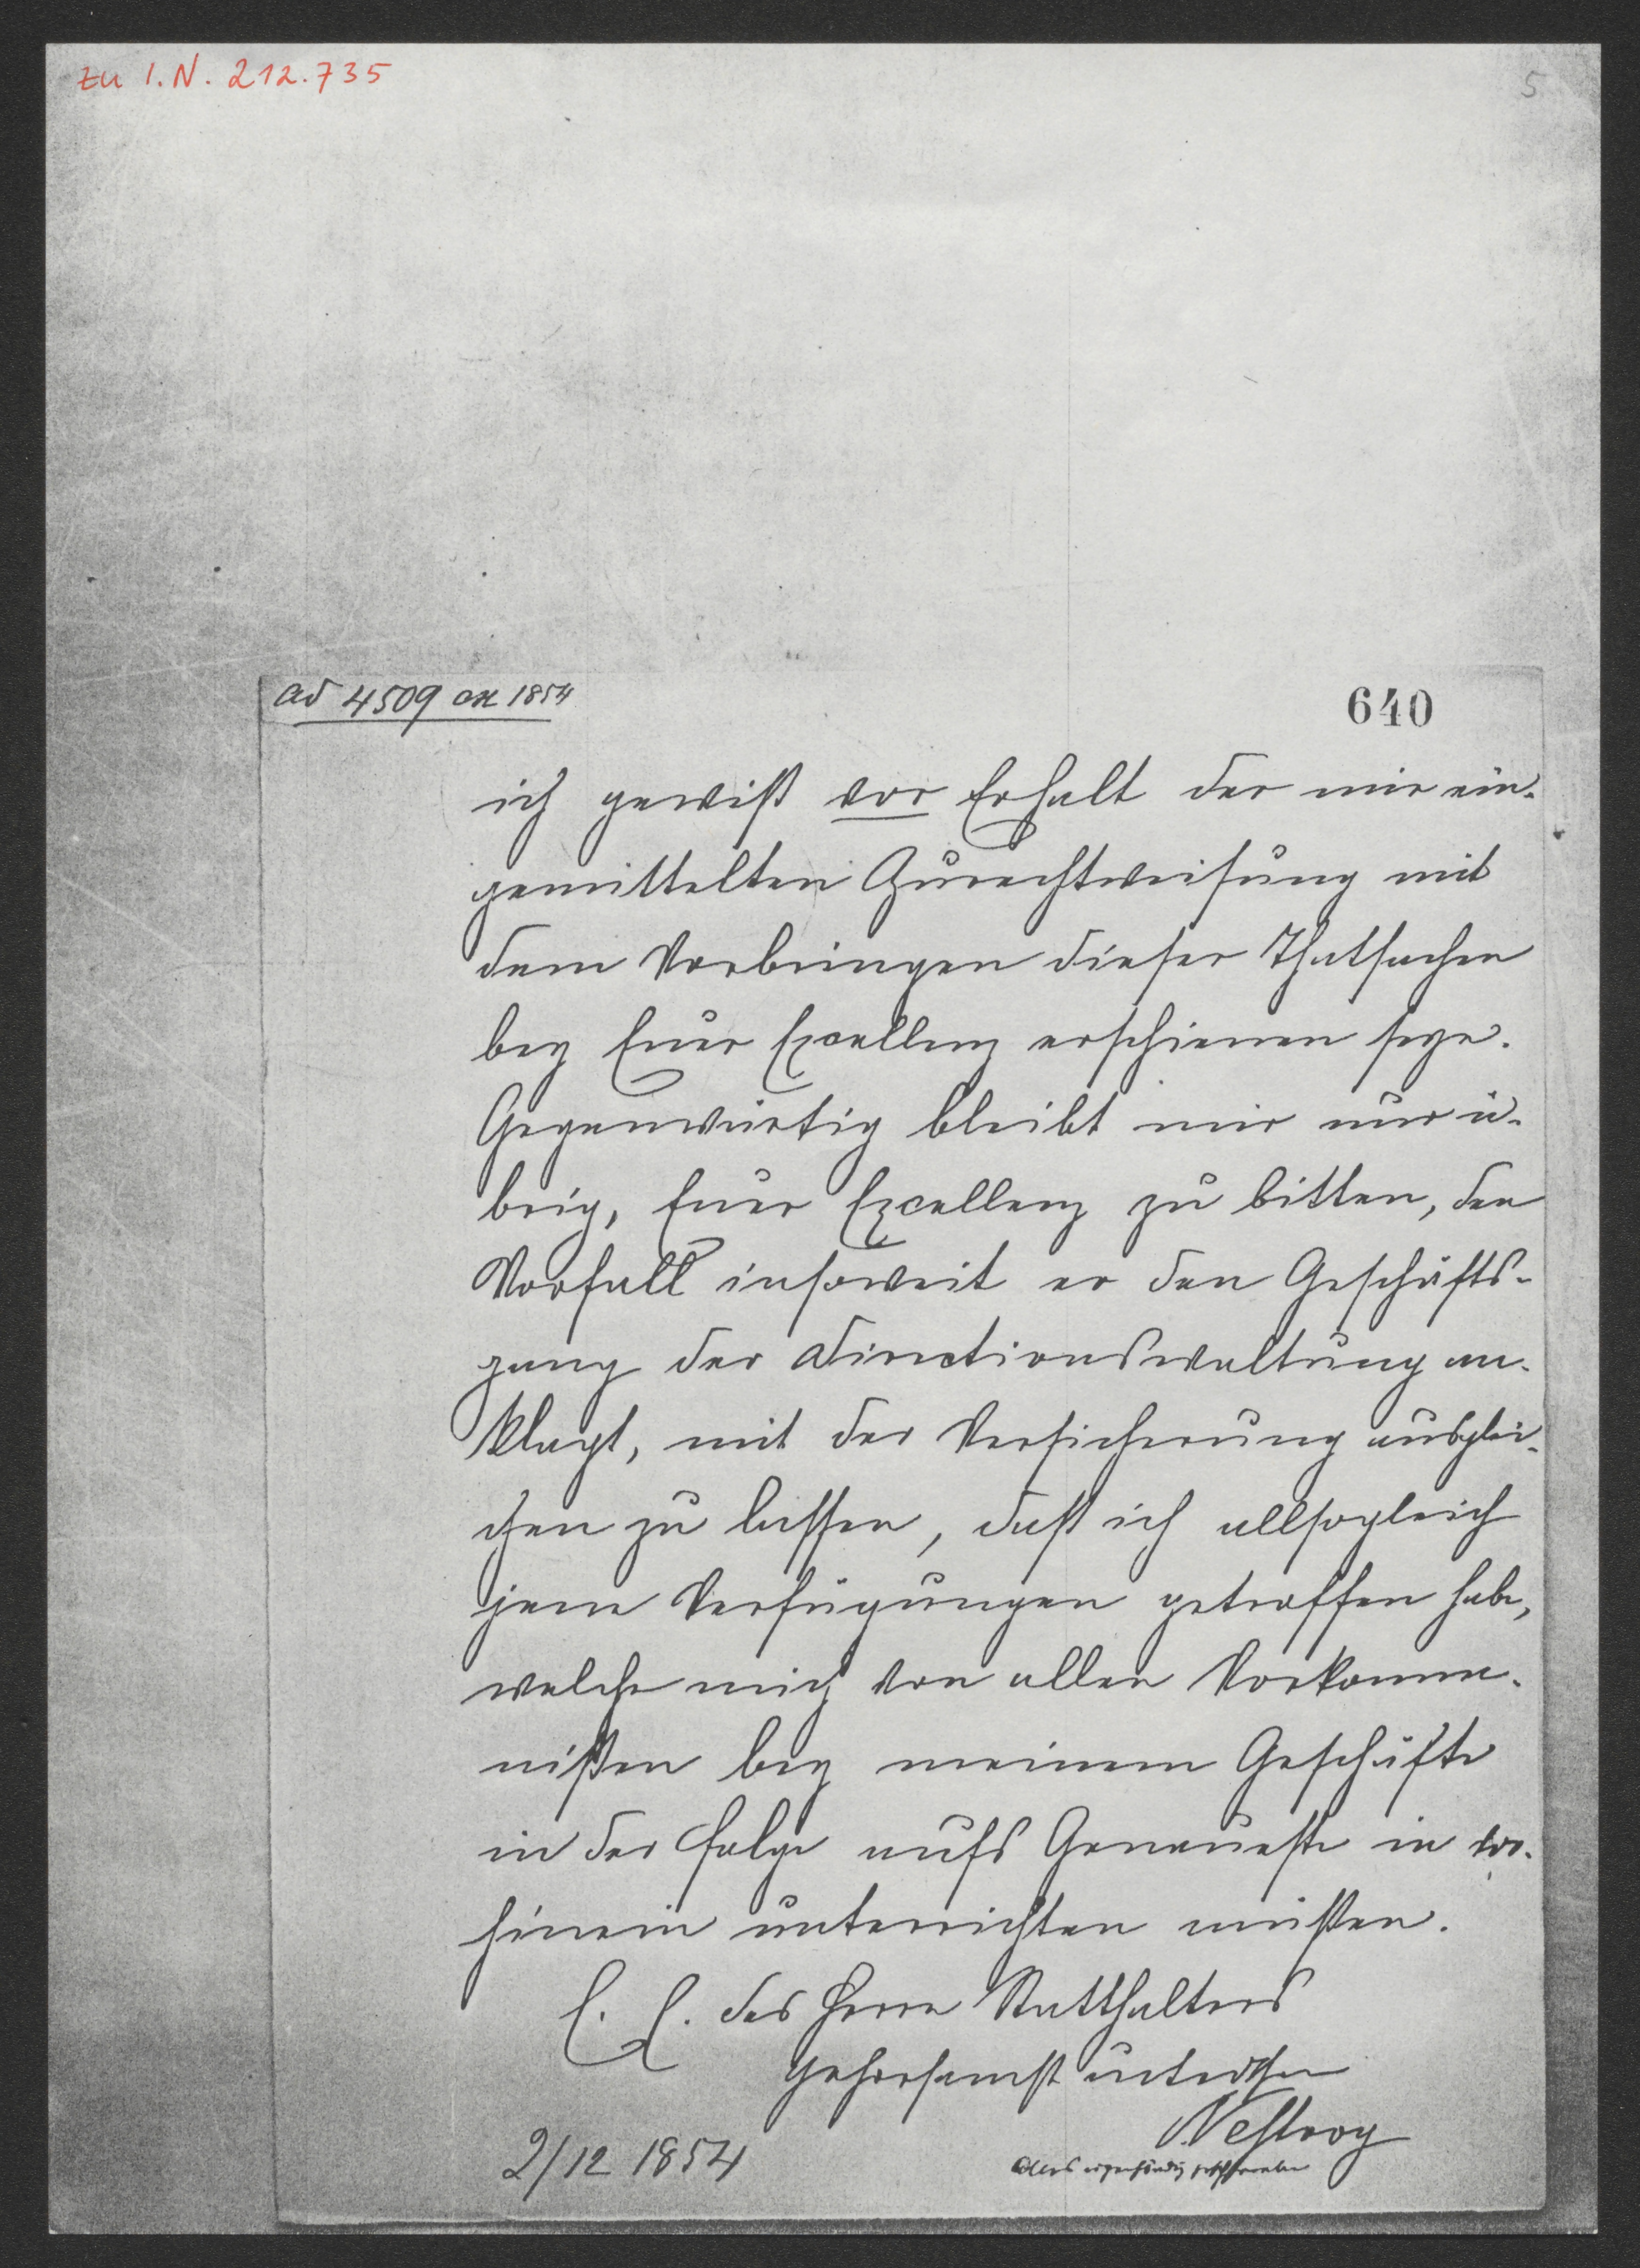 zu I.N. 212.735
5
ad 4509 ex 1854
640
ich gewiß vor Erhalt der mir ein-
gemittelten Zurechtweisung mit
dem Vorbringen dieser Thatsachen
bey Euer Excellenz erschienen seye.
Gegenwärtig bleibt mir nur ü-
brig, Euer Excellenz zu bitten, den
Vorfall insoweit er den Geschäfts-
gang der Directionswaltung an-
klagt, mit der Versicherung ausglei-
chen zu lassen, daß ich allsogleich
jene Verfügungen getroffen habe,
welche mich von allen Vorkomm-
nißen bey meinem Geschäfte
in der Folge aufs Genaueste in vor-
hinein unterrichten müßen.
E. E. des Herrn Statthalters
gehorsamst
Nestroy
2/12 1854
alles eigenhändig geschrieben